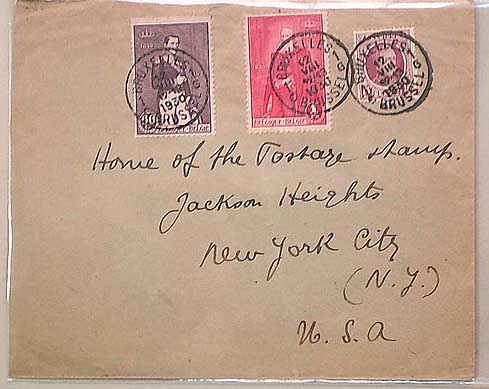 1830
1830
BRUXELLES
BRUSSEL
1930
BRUXELLES
BRUSSEL
1930
BRUXELLES
BRUSSEL
1930
Home of the Postage stamp.
Jackson Heights
New York City
(N.Y.)
U.S.A